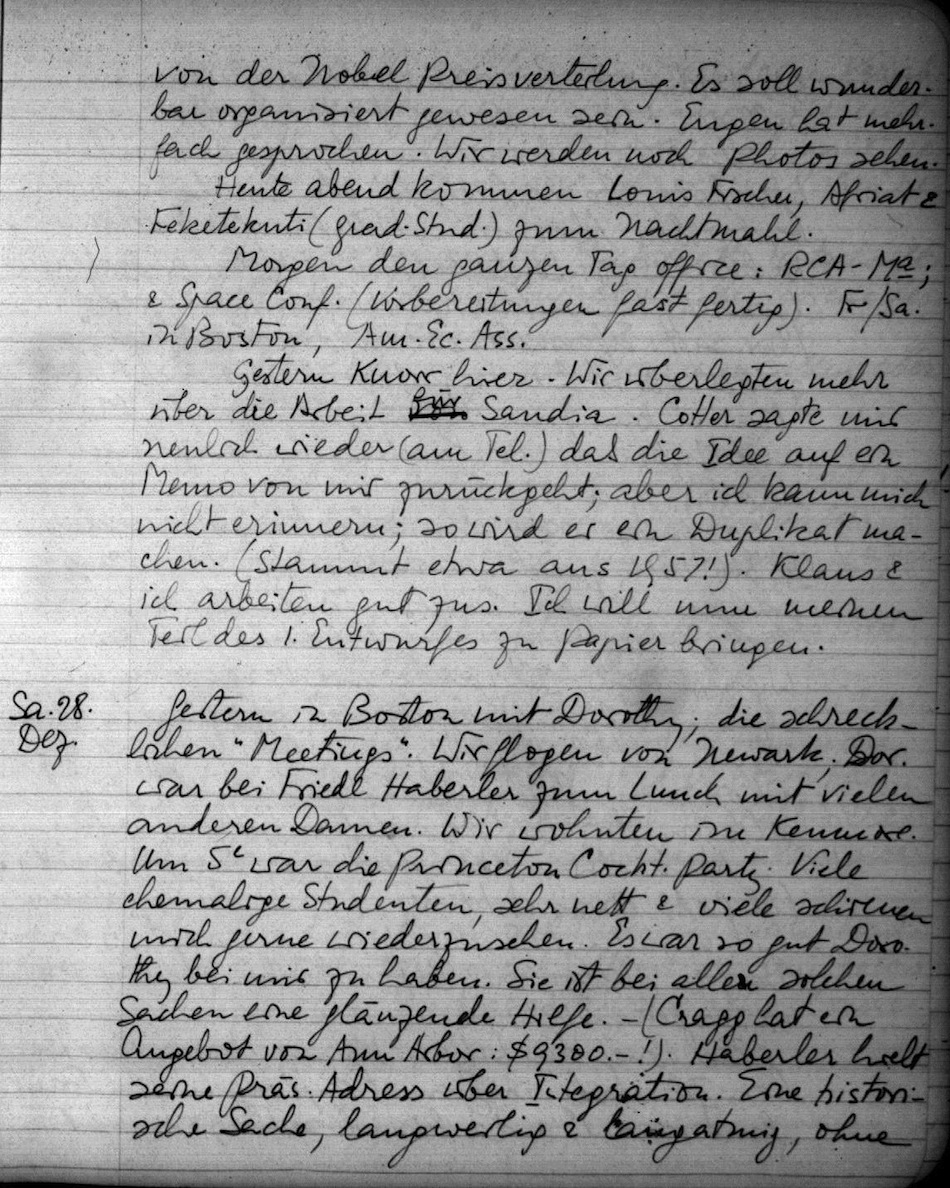 von der Nobel Preisverteilung. Es soll wunder-
bar organisiert gewesen sein. Eugen hat mehr-
fach gesprochen. Wir werden noch Photos sehen.
Heute abend kommen Louis Fischer, Afriat &
Feketekuti (grad. Stud.) zum Nachtmahl.
Morgen den ganzen Tag office: RCA-Ma;
& Space Conf. (Vorbereitungen fast fertig). Fr/Sa.
in Boston, Am. Ec. Ass.
Gestern Knorr hier. Wir überlegten mehr
über die Arbeit für Sandia. Cotter sagte mir
neulich wieder (am Tel.) das die Idee auf ein
Memo von mir zurückgeht; aber ich kann mich
nicht erinnern; so wird er ein Duplikat ma-
chen. (Stammt etwa aus 1957!). Klaus &
ich arbeiten gut zus. Ich will nun meinen
Teil des 1. Entwurfes zu Papier bringen.
Sa. 28. Dez.
Gestern in Boston mit Dorothy; die schreck-
lichen "Meetings". Wir flogen von Newark. Dor.
war bei Friedl Haberler zum Lunch mit vielen
anderen Damen. Wir wohnten im Kenmore.
Um 5h war die Princeton Cockt. party. Viele
ehemalige Studenten, sehr nett & viele schienen
mich gerne wiederzusehen. Es war so gut Doro-
thy bei mir zu haben. Sie ist bei allen solchen
Sachen eine glänzende Hilfe. – (Cragg hat ein
Angebot von Ann Arbor: $9300.–!). Haberler hielt
seine Präs. Adress über Integration. Eine histori-
sche Sache, langweilig & langatmig, ohne